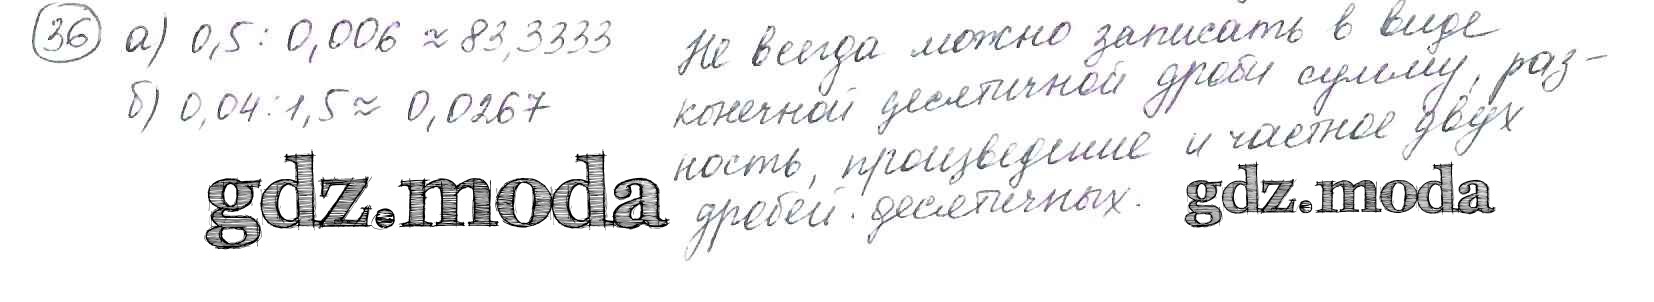 36 а) 0,5 : 0,006 ≈ 83,3333
б) 0,04 : 1,5 ≈ 0,0267
Не всегда можно записать в виде
конечной десятичной дроби сумму, раз-
ность, произведение и частное двух
дробей десятичных.
gdz.moda
gdz.moda